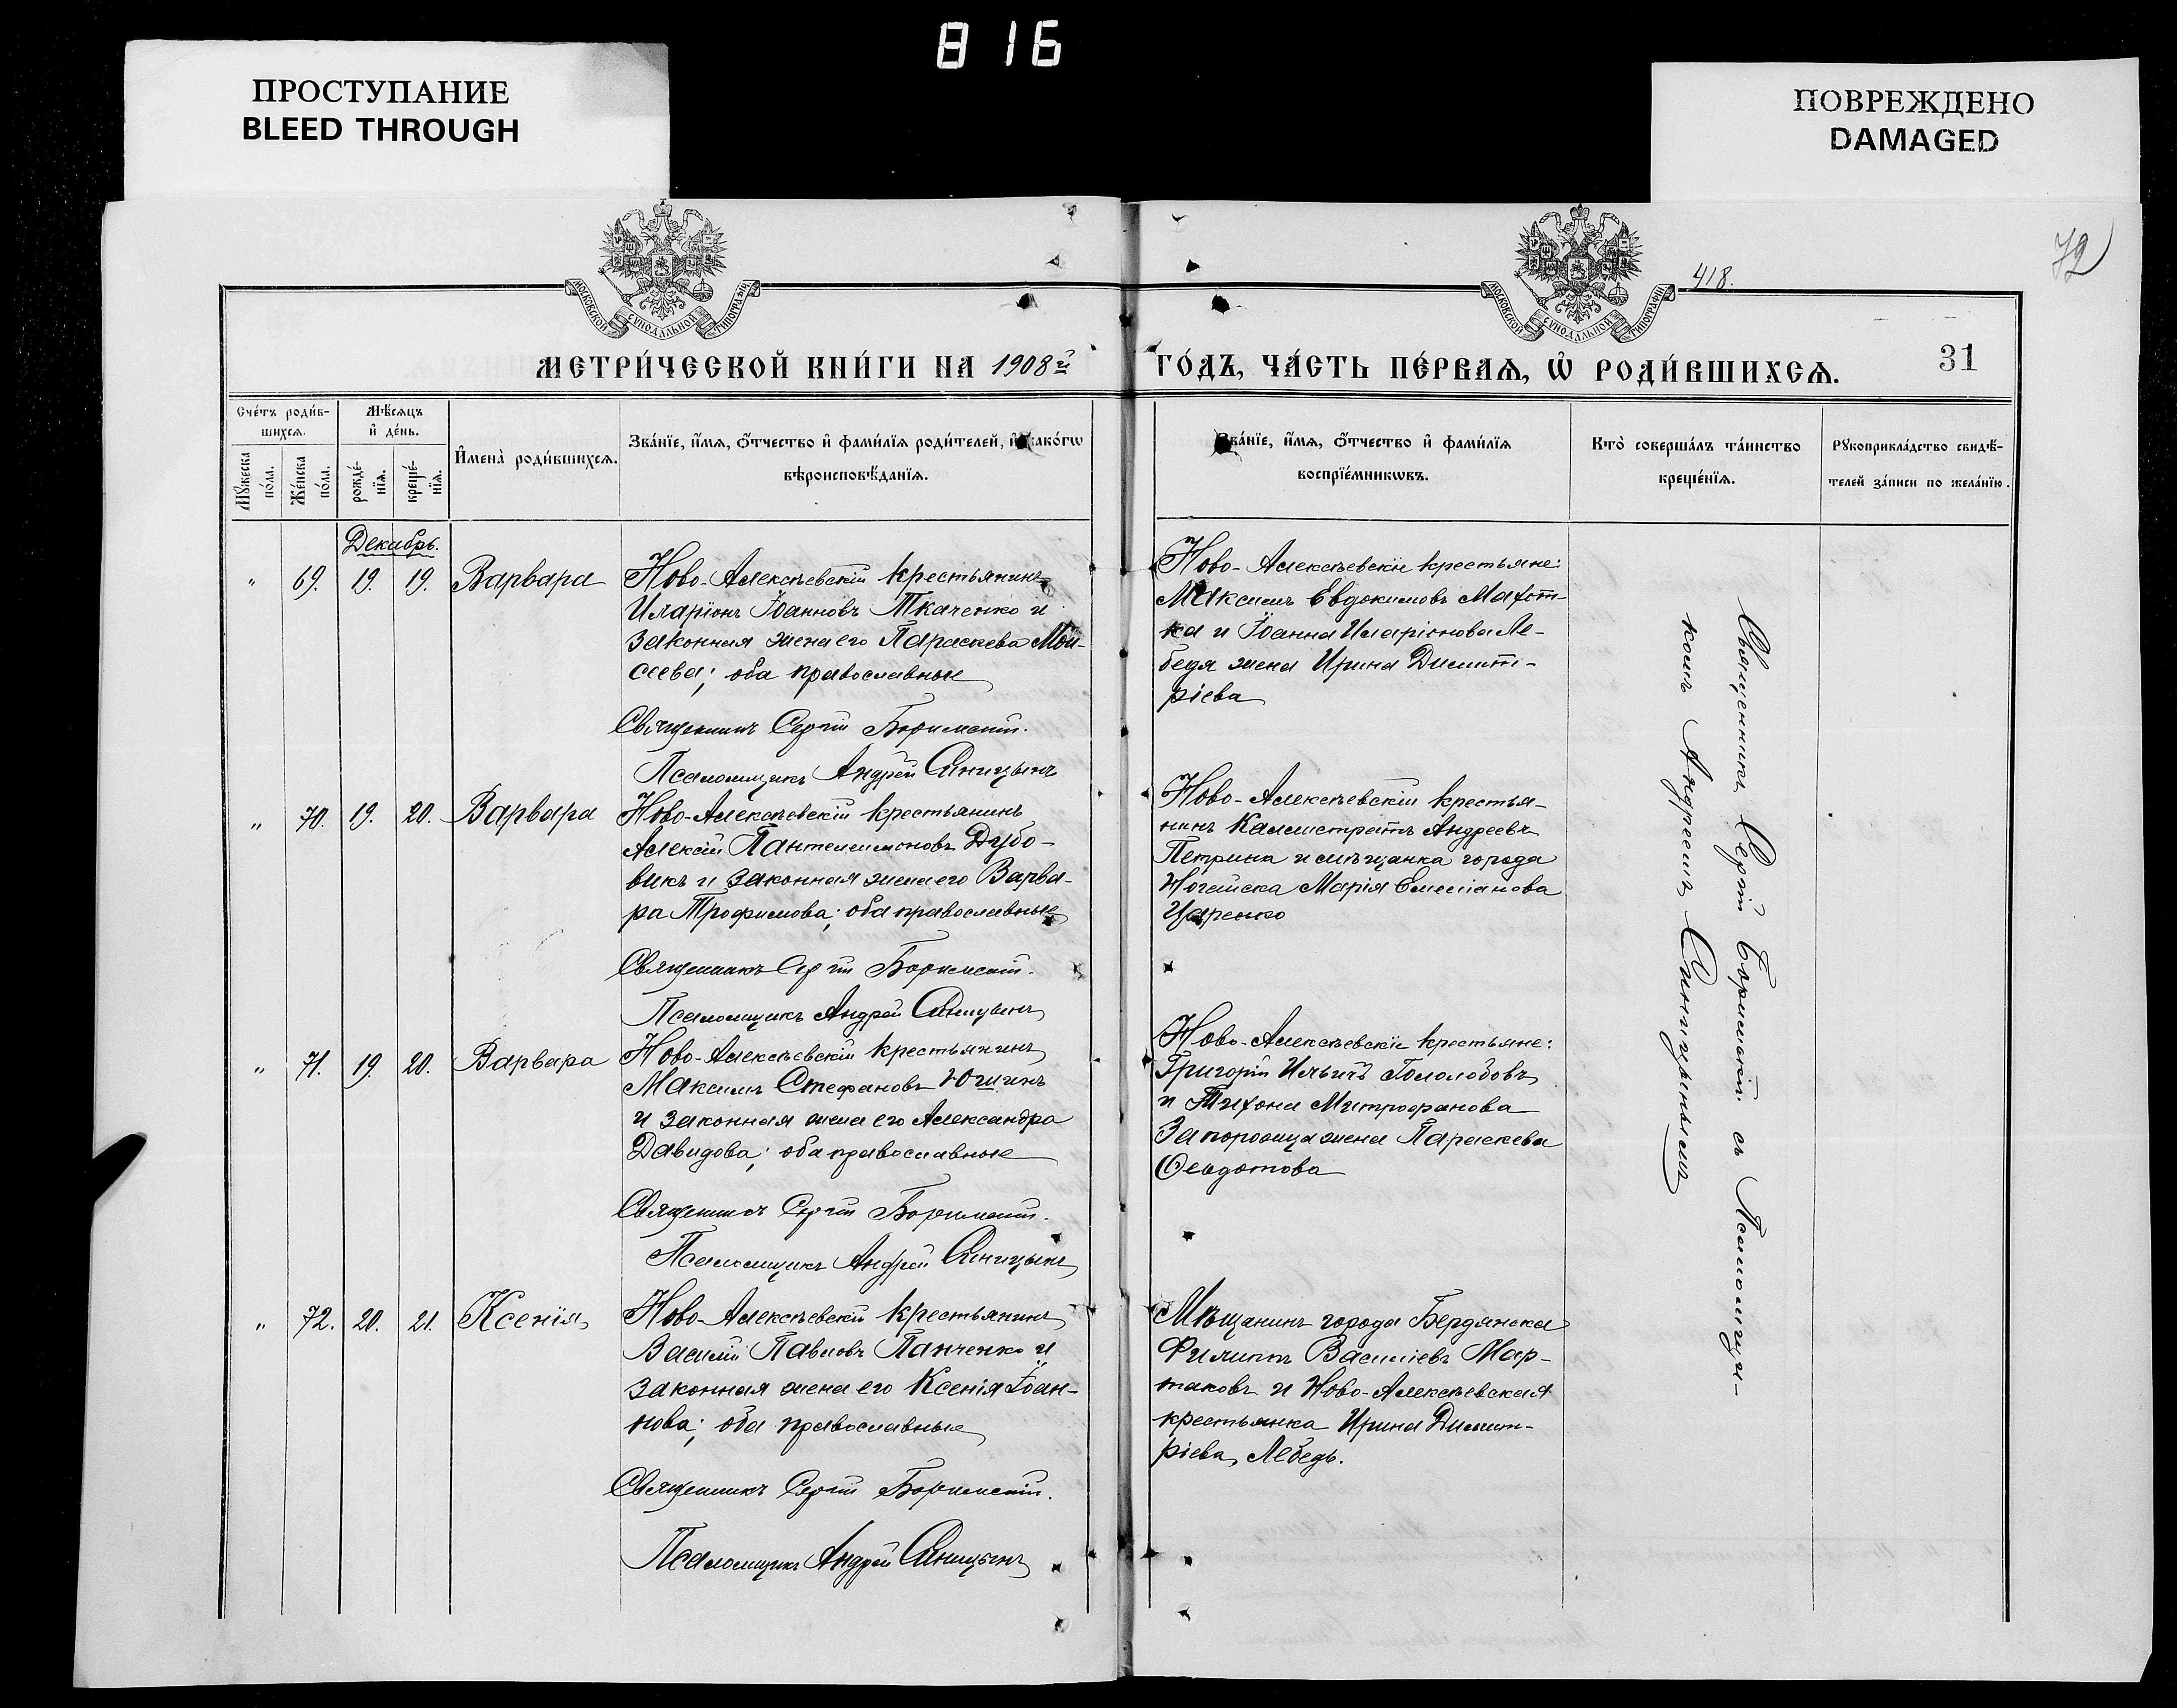 816
ПРОСТУПАНИЕ
BLEED THROUGH
ПОВРЕЖДЕНО
DAMAGED
72
418.
МОСКОВСКОЙ СѴНОДАЛЬНОЙ ТИПОГРАФІИ
МОСКОВСКОЙ СѴНОДАЛЬНОЙ ТИПОГРАФІИ
МЕТРИ́ЧЕСКОЙ КНИ́ГИ НА 1908й ГО́ДЪ, ЧА́СТЬ ПЕ́РВАѦ, Ѡ҆ РОДИ́ВШИХСѦ.
31
Сче́тъ роди́в-
шихсѧ.
Мѣ́сѧцъ
и҆ де́нь.
Мꙋ́жеска
по́ла.
Же́нска
по́ла.
рожде́-
нїѧ.
креще́-
нїѧ.
И҆мена̀ роди́вшихсѧ.
Зва́нїе, и҆́мѧ, ѻ҆́тчество и҆ фами́лїѧ роди́телей, и҆ како́гѡ
вѣроисповѣ́данїѧ.
Зва́нїе, и҆́мѧ, ѻ҆́тчество и҆ фами́лїѧ
воспрїе́мникѡвъ.
Кто̀ соверша́лъ та́инство
креще́нїѧ.
Рꙋкоприкла́дство свидѣ́-
телей за́писи по жела́нїю.
Декабрь.
„ 69. 19. 19. Варвара
Ново-Алексѣевскій крестьянинъ
Иларіонъ Іоанновъ Ткаченко и
законная жена его Параскева Мои-
сеева; оба православные
Священникъ Сергій Боримскій.
Псаломщикъ Андрей Синицынъ
Ново-Алексѣевскіе крестьяне:
Максимъ Евдокимовъ Махот-
ка и Іоанна Иларіонова Ле-
бедя жена Ирина Димит-
ріева
„ 70. 19. 20. Варвара
Ново-Алексѣевскій крестьянинъ
Алексій Пантелеимоновъ Дубо-
викъ и законная жена его Варва-
ра Трофимова; оба православные
Священникъ Сергій Боримскій.
Псаломщикъ Андрей Синицынъ
Ново-Алексѣевскій крестья-
нинъ Каллистратъ Андреевъ
Петрина и мѣщанка города
Ногайска Марія Емеліанова
Царенко
„ 71. 19. 20. Варвара
Ново-Алексѣевскій крестьянинъ
Максимъ Стефановъ Югинъ
и законная жена его Александра
Давидова; оба православные
Священникъ Сергій Боримскій.
Псаломщикъ Андрей Синицынъ
Ново-Алексѣевскіе крестьяне:
Григорій Ильичъ Гололобовъ
и Тихона Митрофанова
Запорожца жена Параскева
Ѳеодотова
„ 72. 20. 21. Ксенія
Ново-Алексѣевскій крестьянинъ
Василій Павловъ Панченко и
законная жена его Ксенія Іоан-
нова; оба православные
Священникъ Сергій Боримскій.
Псаломщикъ Андрей Синицынъ
Мѣщанинъ города Бердянска
Филиппъ Василіевъ Мар-
таковъ и Ново-Алексѣевская
крестьянка Ирина Димит-
ріева Лебедь.
Священникъ Сергій Боримскій съ Псаломщи-
комъ Андреемъ Синицынымъ